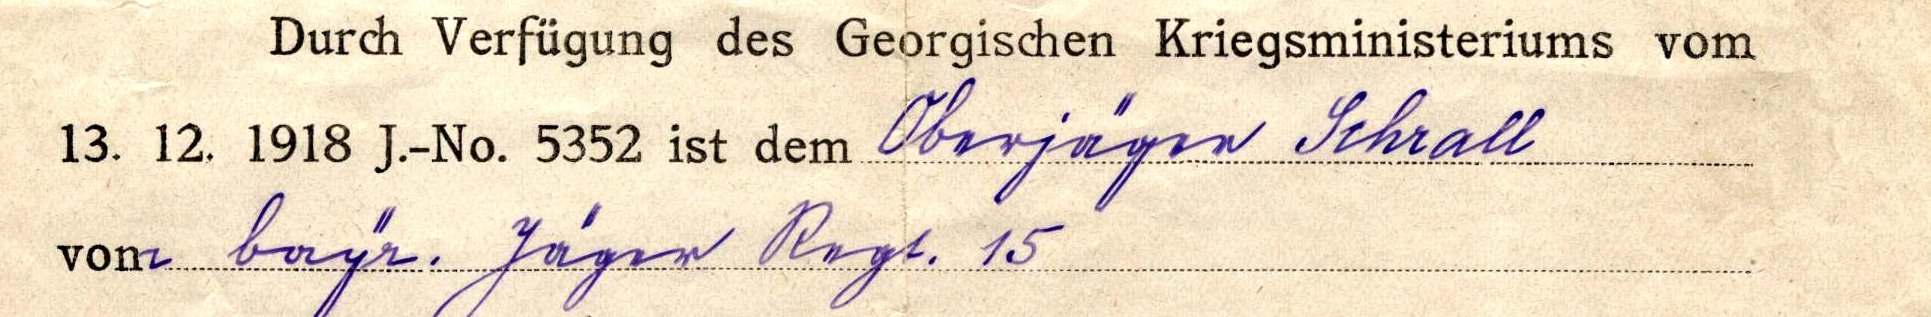 Durch Verfügung des Georgischen Kriegsministeriums vom
13. 12. 1918 J.-No. 5352 ist dem Oberjäger Schrall
vom bayr. Jäger Regt. 15